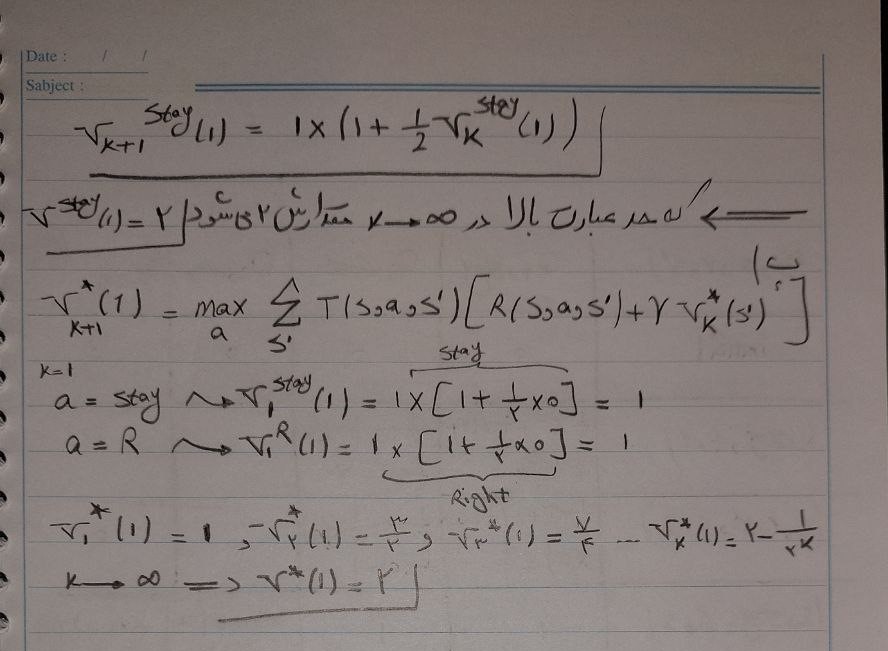 Date : / /
Sabject :
V_{k+1}^{stay}(1) = 1×(1+ \frac{1}{2} V_k^{stay}(1))
⟸ که حد عبارت بالا در k → ∞ مقدارش ۲ می شود V^{stay}(1) = ۲
ب)
V^*_{k+1}(1) = max_a Σ_{s'} T(s,a,s') [R(s,a,s') + γ V_k^*(s')]
k=1
stay
a = stay ⤳ V_1^{stay}(1) = 1×[1+ \frac{1}{۲}×0] = 1
a = R ⤳ V_1^R(1) = 1×[1+ \frac{1}{۲}×0] = 1
Right
V_1^*(1) = 1 , V_۲^*(1) = \frac{۳}{۲} , V_۳^*(1) = \frac{۷}{۴} ... V_k^*(1) = ۲ - \frac{1}{۲^k}
k → ∞ ⟹ V^*(1) = ۲